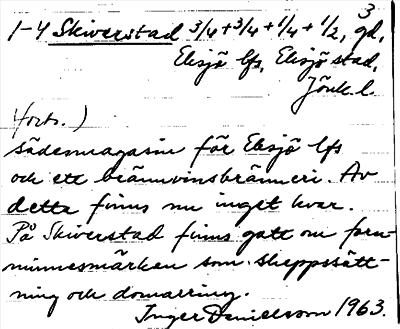 3
1-4 Skiverstad 3/4+3/4+1/4+1/2, gd,
Eksjö lfs, Eksjö stad,
Jönk. l.
Forts.)
sädesmagasin för Eksjö lfs
och ett brännvinsbränneri. Av
detta finns nu inget kvar.
På Skiverstad finns gott om forn-
minnesmärken som skeppssätt-
ning och domarring.
Inger Danielsson 1963.